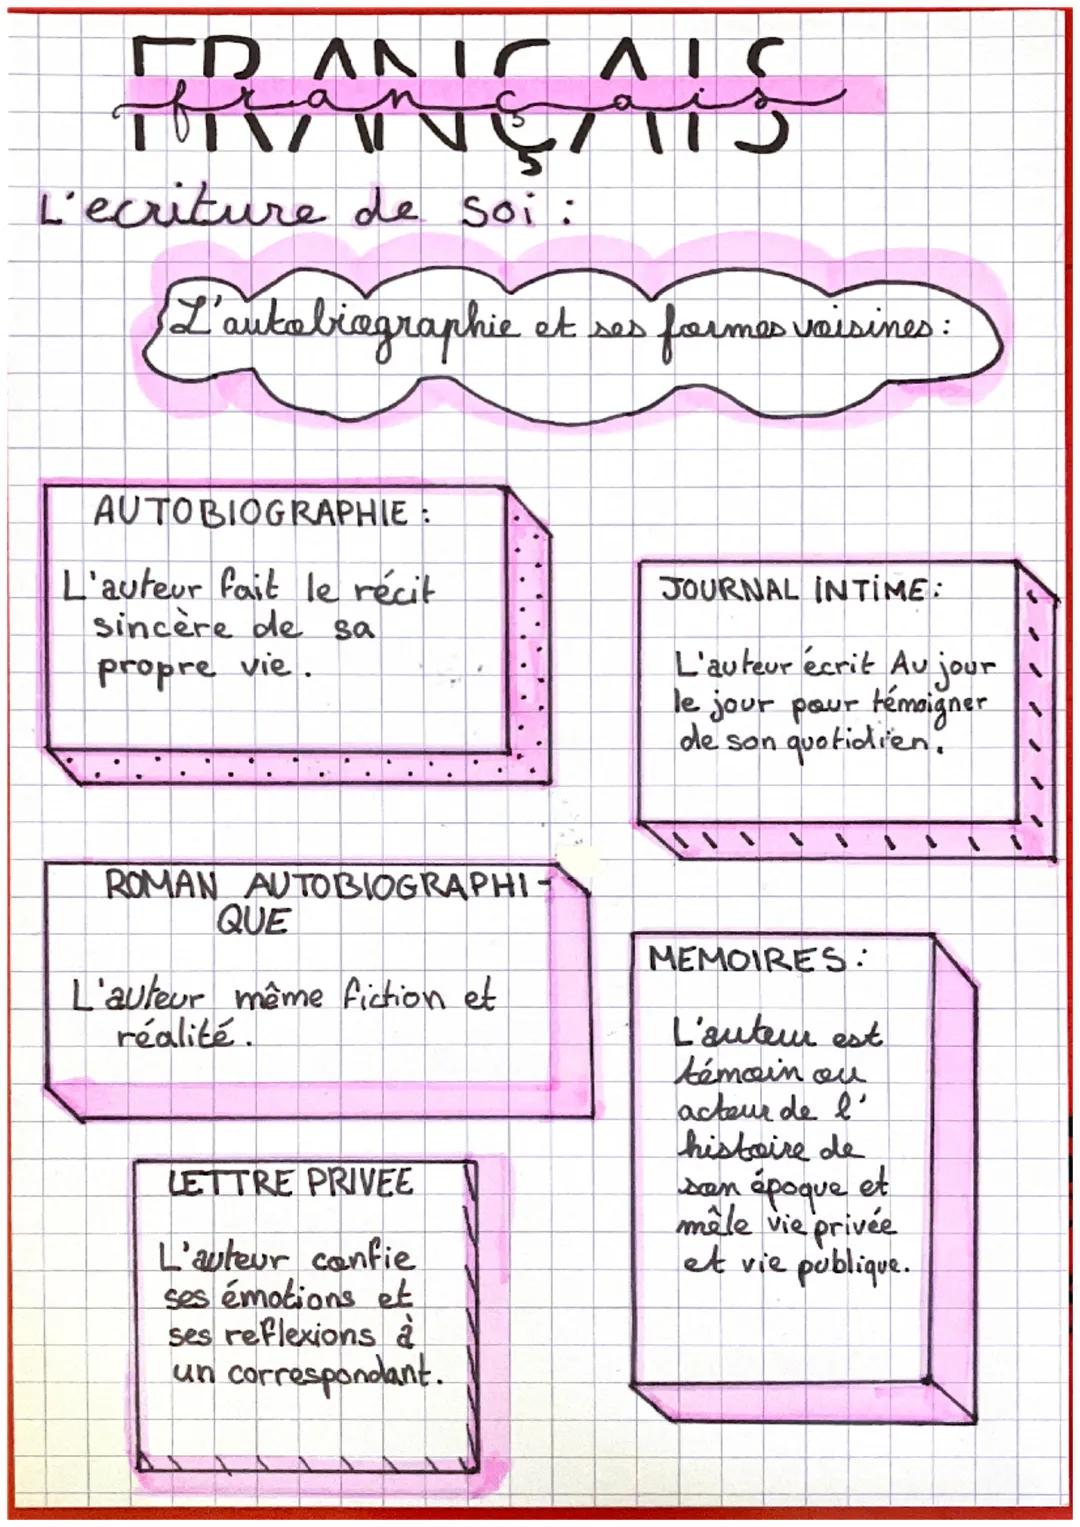 FRANÇAIS
français
L'ecriture de soi :
L'autobiographie et ses formes voisines :
AUTOBIOGRAPHIE :
L'auteur fait le récit
sincère de sa
propre vie.
JOURNAL INTIME :
L'auteur écrit Au jour
le jour pour témoigner
de son quotidien.
ROMAN AUTOBIOGRAPHI-
QUE
L'auteur même fiction et
réalité.
MEMOIRES :
L'auteur est
témoin ou
acteur de l'
histoire de
son époque et
mêle vie privée
et vie publique.
LETTRE PRIVEE
L'auteur confie
ses émotions et
ses reflexions à
un correspondant.